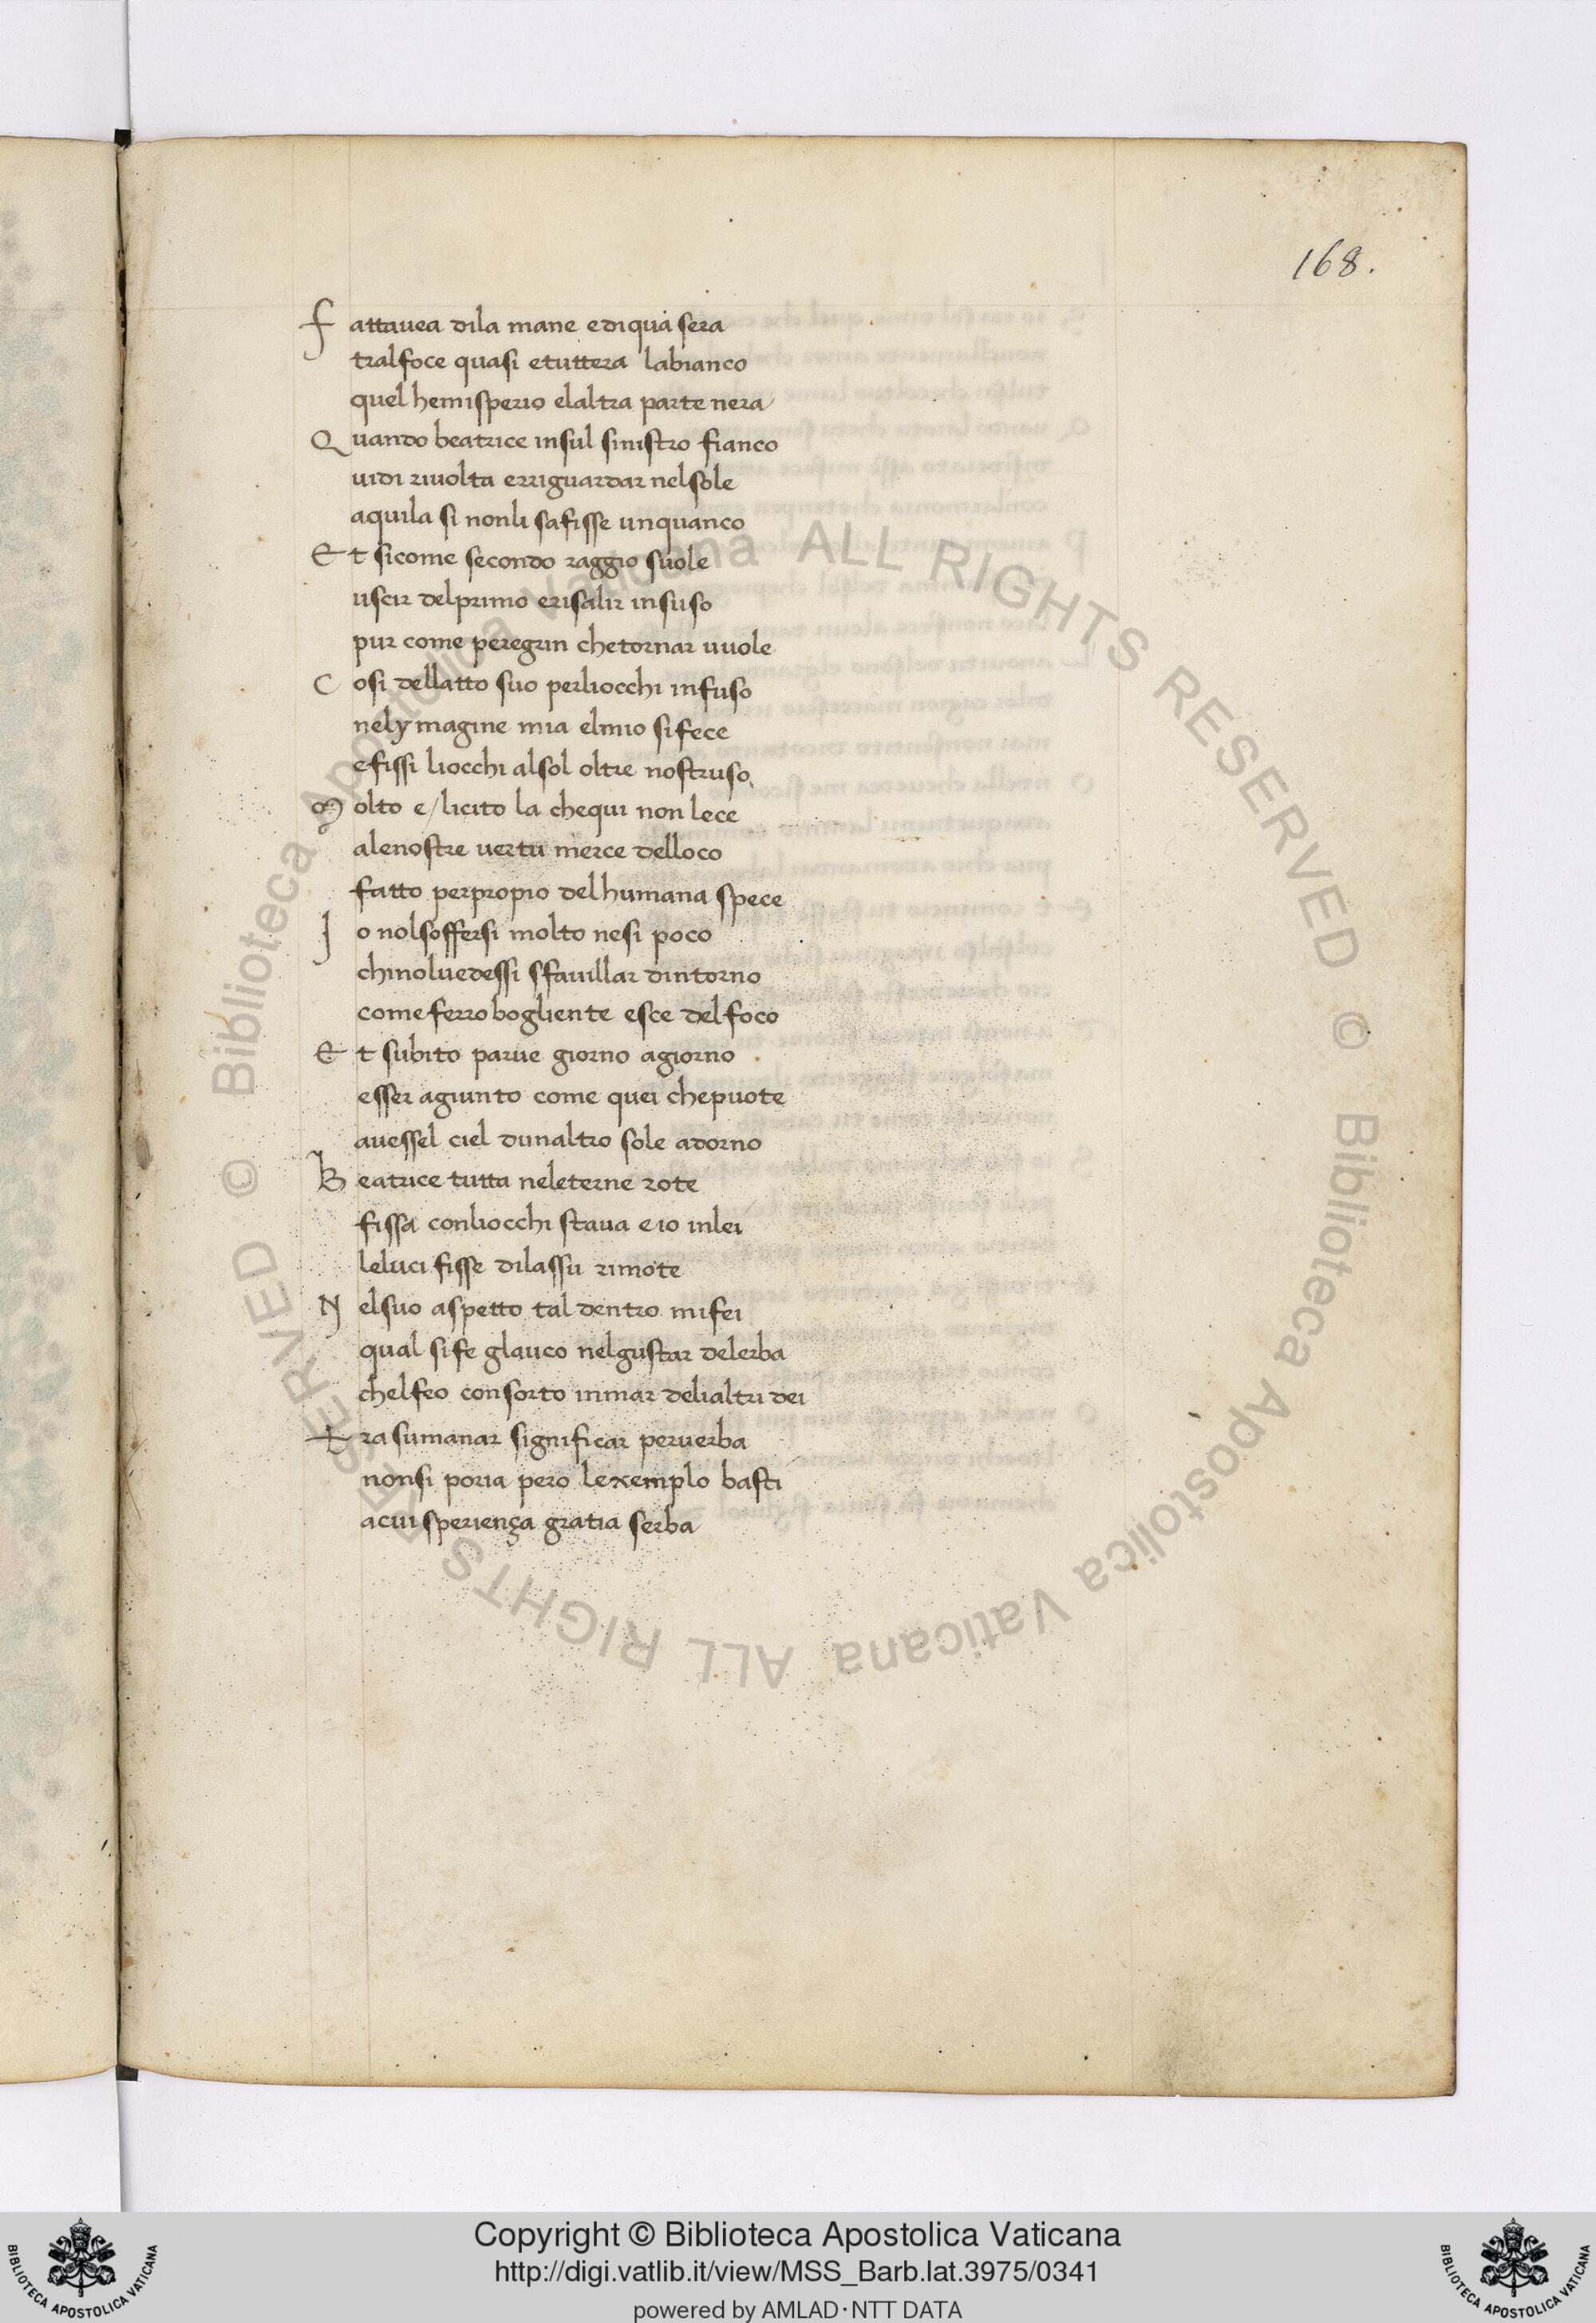 168.
Fattauea dila mane ediqua sera
tralfoce quasi etuttera labianco
quel hemisperio elaltra parte nera
Quando beatrice insul sinistro fianco
uidi riuolta erriguardar nelsole
aquila si nonli safisse unquanco
Et sicome secondo raggio suole
uscir delprimo erisalir insuso
pur come peregrin chetornar uuole
Cosi dellatto suo perliocchi infuso
nelymagine mia elmio sifece
efissi liocchi alsol oltre nostruso
Molto e/licito la chequi non lece
alenostre uertu merce delloco
fatto perpropio delhumana spece
Io nolsoffersi molto nesi poco
chinoluedessi sfauillar dintorno
come ferro bogliente esce delfoco
Et subito parue giorno agiorno
esser agiunto come quei chepuote
auessel ciel dunaltro sole adorno
Beatrice tutta neleterne rote
fissa conliocchi staua eio inlei
leluci fisse dilassu rimote
Nelsuo aspetto tal dentro mifei
qual sife glauco nelgustar delerba
chelfeo consorto inmar delialtri dei
Trasumanar significar peruerba
nonsi poria pero lexemplo basti
acui speriença gratia serba
© Biblioteca Apostolica Vaticana ALL RIGHTS RESERVED © Biblioteca Apostolica Vaticana ALL RIGHTS RESERVED
Copyright © Biblioteca Apostolica Vaticana
http://digi.vatlib.it/view/MSS_Barb.lat.3975/0341
powered by AMLAD·NTT DATA
BIBLIOTECA APOSTOLICA VATICANA
BIBLIOTECA APOSTOLICA VATICANA